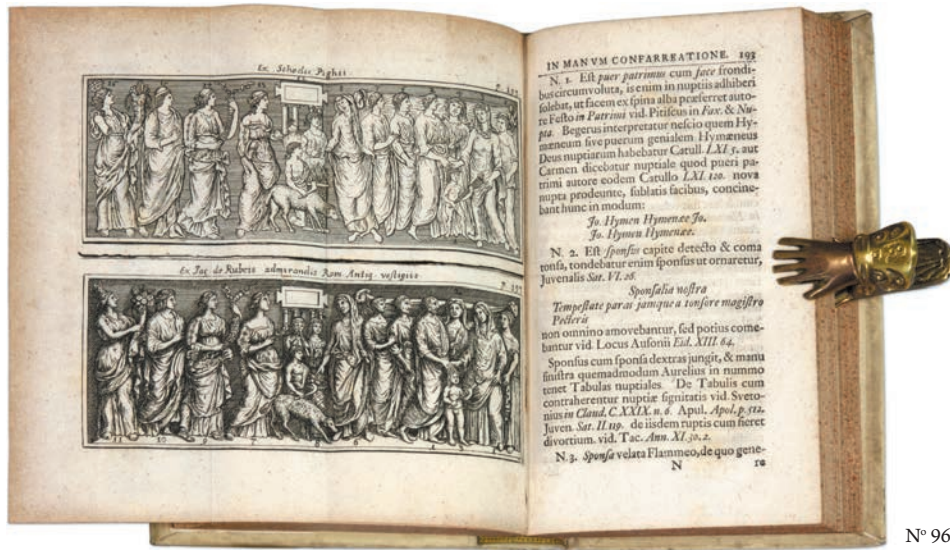 Ex Schedis Pighii
Ex Jac. de Rubeis admirandis Rom. Antiq. vestigiis
11 10 9 7 8 6 1
IN MANVM CONFARREATIONE. 193
N. 1. Est puer patrimus cum face frondi-
bus circumvoluta, is enim in nuptiis adhiberi
solebat, ut facem ex spina alba præferret auto-
re Festo in Patrimi vid. Pitiscus in Fax. & Nu-
pta. Begerus interpretatur nescio quem Hy-
mæneum sive puerum genialem Hymæneus
Deus nuptiarum habebatur Catull. LXI 5. aut
Carmen dicebatur nuptiale quod pueri pa-
trimi autore eodem Catullo LXI. 120. nova
nupta prodeunte, sublatis facibus, concine-
bant hunc in modum:
Jo. Hymen Hymenæe Jo.
Jo. Hymen Hymenæe.
N. 2. Est sponsus capite detecto & coma
tonsa, tondebatur enim sponsus ut ornaretur,
Juvenalis Sat. VI. 26.
Sponsalia nostra
Tempestate paras jamque a tonsore magistro
Pecteris
non omnino amovebantur, sed potius come-
bantur vid. Locus Ausonii Eid. XIII. 64.
Sponsus cum sponsa dextras jungit, & manu
sinistra quemadmodum Aurelius in nummo
tenet Tabulas nuptiales. De Tabulis cum
contraherentur nuptiæ signitatis vid. Sveto-
nius in Claud. C. XXIX. n. 6. Apul. Apol. p. 512.
Juven. Sat. II. 119. de iisdem ruptis cum fieret
divortium. vid. Tac. Ann. XI. 30. 2.
N. 3. Sponsa velata Flammeo, de quo gene-
N re
Nº 96